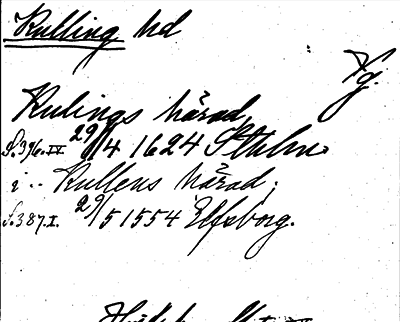 Kulling hd
Vg.
Kulings härad
S. 396. IV. 29/4 1624 Sthlm.
i .. Kullens härad,
S. 387. I. 29/5 1554 Elfsborg.